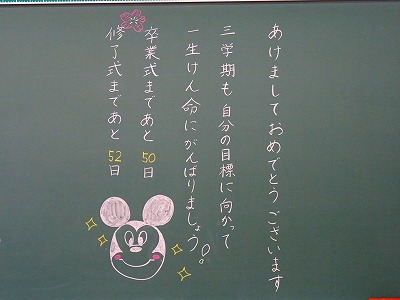 あけましておめでとうございます
三学期も自分の目標に向かって
一生けん命にがんばりましょう!。
卒業式まであと50日
修了式まであと52日